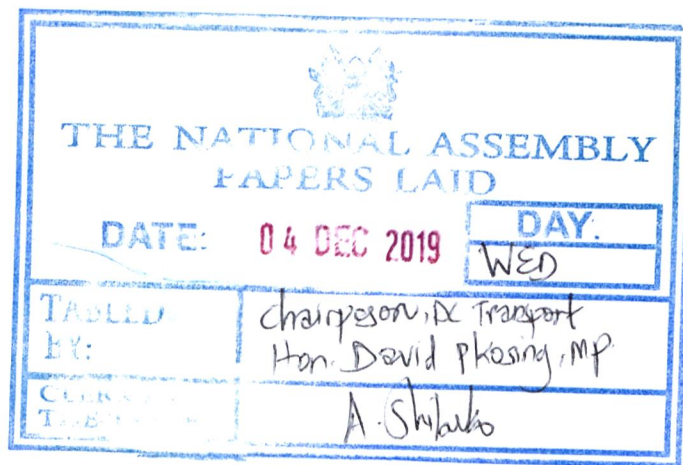 THE NATIONAL ASSEMBLY
PAPERS LAID
DATE: 04 DEC 2019
DAY.
WED
TABLED
BY:
Chairpeson, DC Transport
Hon. David Pkosing, MP
A. Shibuko